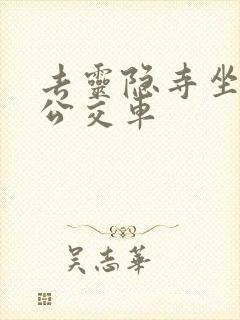 去靈隐寺坐
公交車
吴志華